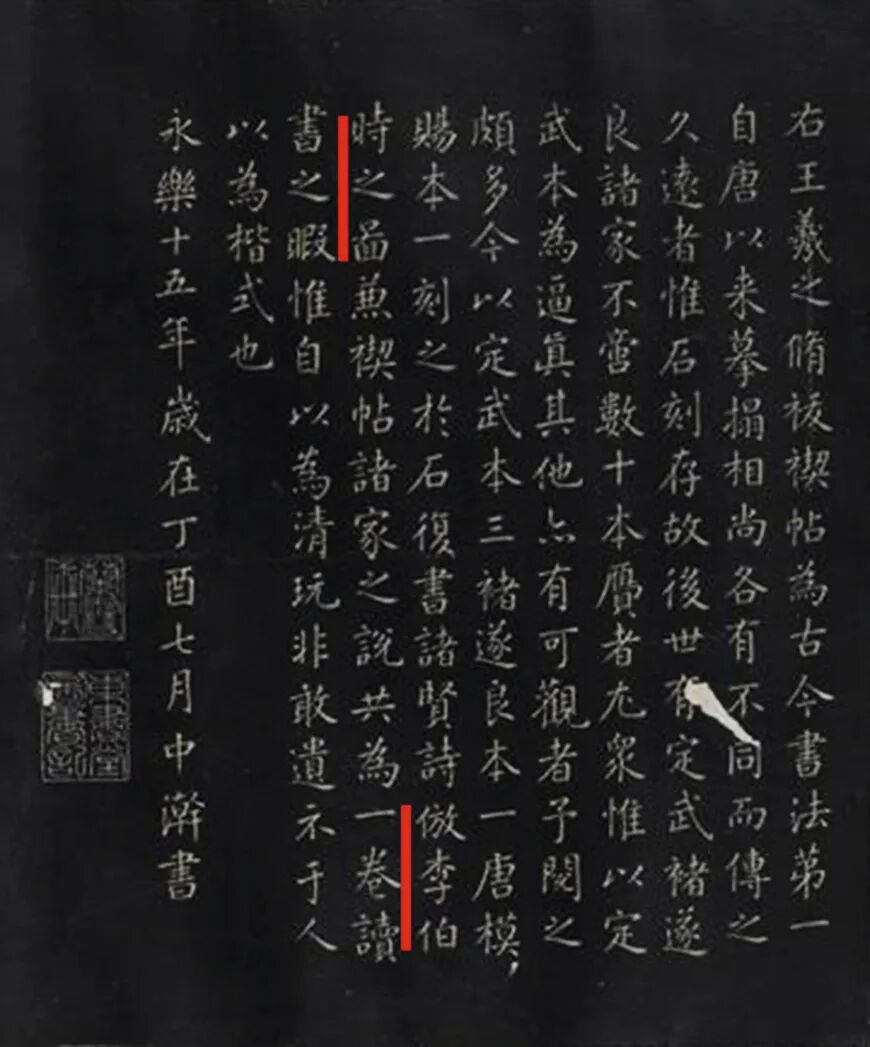 右王羲之脩祓禊帖為古今書法第一
自唐以来摹搨相尚各有不同而傳之
久遠者惟石刻存故後世有定武褚遂
良諸家不啻數十本贋者尤衆惟以定
武本為逼真其他亦有可觀者予閱之
頗多今以定武本三褚遂良本一唐模,
賜本一刻之於石復書諸賢詩倣李伯
時之啚兼禊帖諸家之說共為一卷讀
書之暇惟自以為清玩非敢遺示于人
以為楷式也
永樂十五年歲在丁酉七月中澣書